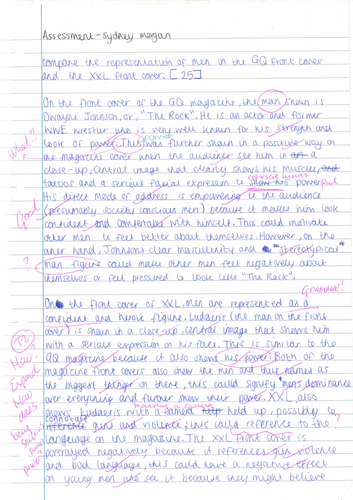 Assessment - Sydney morgan
compare the representation of men in the GQ front cover
and the XXL front cover. [25]
On the front cover of the GQ magazine, the man shown is
Dwayne Johnson, or, "The Rock". He is an actor and former
WWE wrestler who is very well known for his strength and
look of power. This was further shown in a positive way on
power
What...?
the magazine cover when the audience see him in a
close-up, central image that clearly shows his muscles,
tattoos and a serious facial expression to show powerful.
represent him as
His direct mode of address is empowering to the audience
Good
(presumably society conscious men) because it makes him look
confident and comfortable with himself. This could motivate
other men to feel better about themselves. However, on the
other hand, Johnsons clear masculinity and "stereotypical"
man figure could make other men feel negatively about
?
themselves or feel pressured to look like "The Rock".
On the front cover of XXL, men are represented as a
confident and heroic figure. Ludacris (the man on the front
cover) is shown in a close up, central image that shows him
with a serious expression on his face. This is similar to the
T2
GQ magazine because it also shows his power. Both of the
How-
magazine front covers also show the men and their names as
Expand
the biggest things on there, this could signify mens dominance
How
over everything and further show their power. XXL also
does
shows Ludacris with a hand held up, possibly to
being
serious
show
power?
connotate
reference guns and violence; this could reference to the
language on the magazine. The XXL front cover is
portrayed negatively because it references gun violence
and bad language, this could have a negative effect
on young men who see it because they might believe